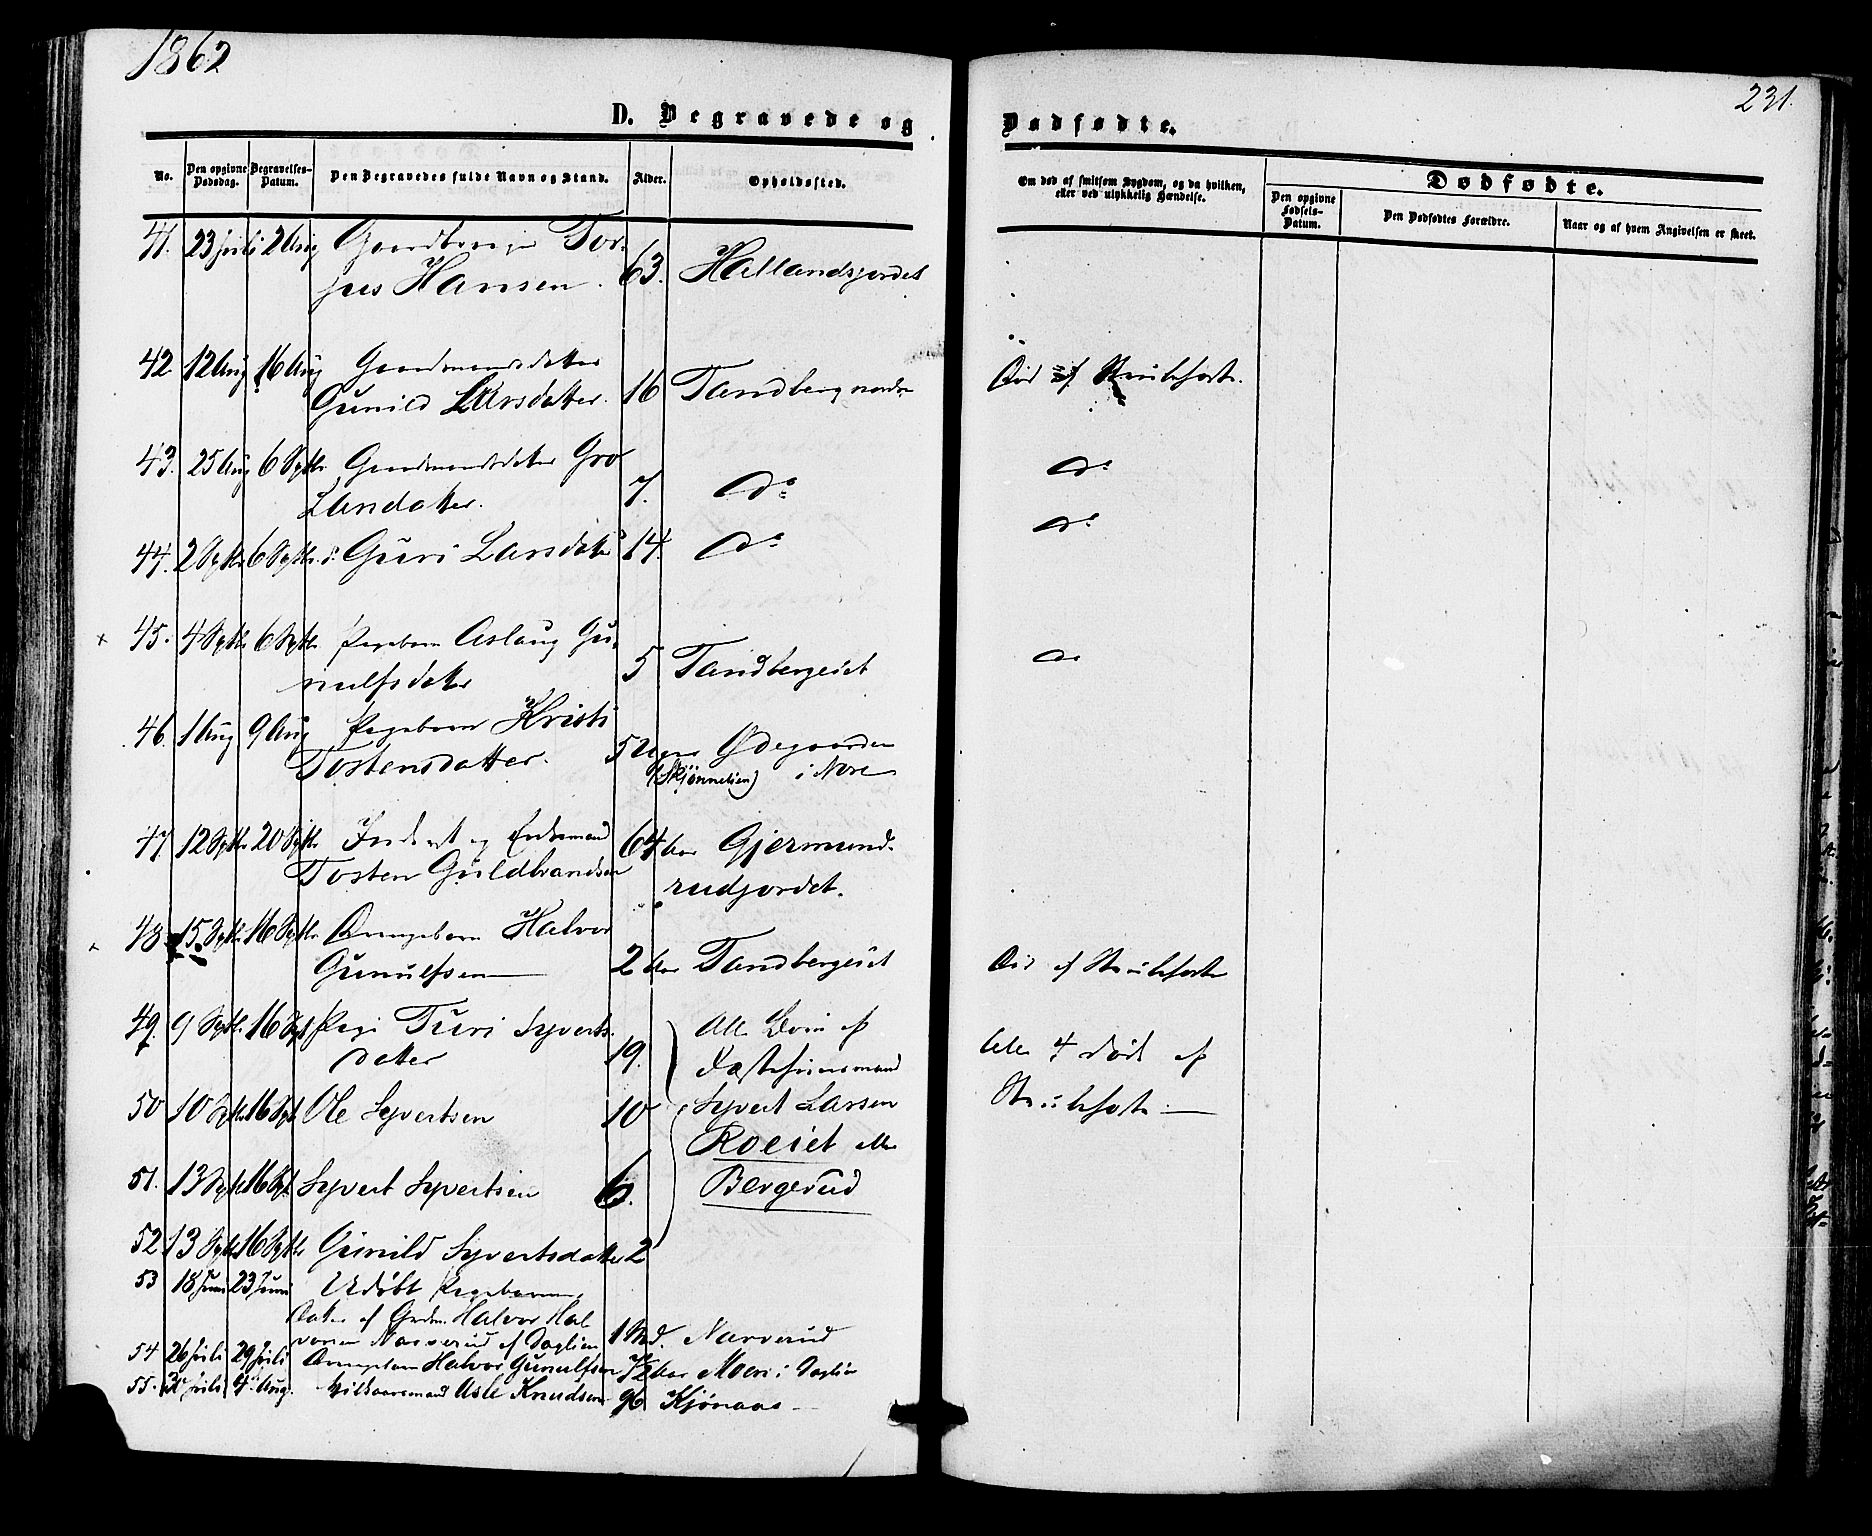 1862
231.
D. Begravede og Dødfødte.
No. Den opgivne Dødsdag. Begravelses-Datum. Den Begravedes fulde Navn og Stand. Alder. Opholdssted.
Om død af smitsom Sygdom, og da hvilken, eller ved ulykkelig Hændelse.
Dødfødte.
Den opgivne Fødsels-Datum. Den Dødfødtes Forældre. Naar og af hvem Angivelsen er skeet.
41. 23 Juli 2 Aug Tor-
Hansen. 63. Hallandsjordet
42 12 Aug 16 Aug Gaardmandsdatter
Gunild Larsdatter. 16 Tandberg nordre Død af Strubehoste.
43. 25 Aug 6 Septbr Gaardmandsdatter Gro
Larsdatter. 7. do do
44. 2 Septbr 6 Septbr Guri Larsdatter 14. do do
45. 4 Septbr 6 Septbr Pigebarn Aslaug Gu-
nulfsdatter 5 Tandbergeiet do
46. 1 Aug 9 Aug Pigebarn Kristi
Tostensdatter. 5 Uger Ødegaarden
(Skjønnelien) i Nore
47 12 Septbr 20 Septbr Inderst og Enkemand
Tosten Guldbrandsen 64 Aar Gjermund-
rudjordet.
48 15 Septbr 16 Septbr Drengebarn Halvor
Gunulfsen 2 Aar Tandbergeiet Død af Strubehoste
49. 9 Septbr 16 Sept Pige Turi Syverts-
datter 19. Alle Børn af
Fæstehuusmand
50 10 Septbr 16 Sept Ole Syvertsen 10 Syvert Larsen
Roeiet eller
51. 13 Septbr 16 Sept. Syvert Syvertsen 6. Bergerud
Alle 4 døde af
Strubehoste
52 13 Septbr 16 Septbr Gunild Syvertsdatter 2
53 18 Juni 23 Juni Udøbt Pigebarn,
Datter af Grdm. Halvor Hal-
vorsen Narverud af 1 Md. Narverud
54 26 Juli 29 Juli Drengebarn Halvor Gunulfsen 1/2 Aar Moen i
55. Juli 4 Aug. Asle Knudsen 96 Kjønaas